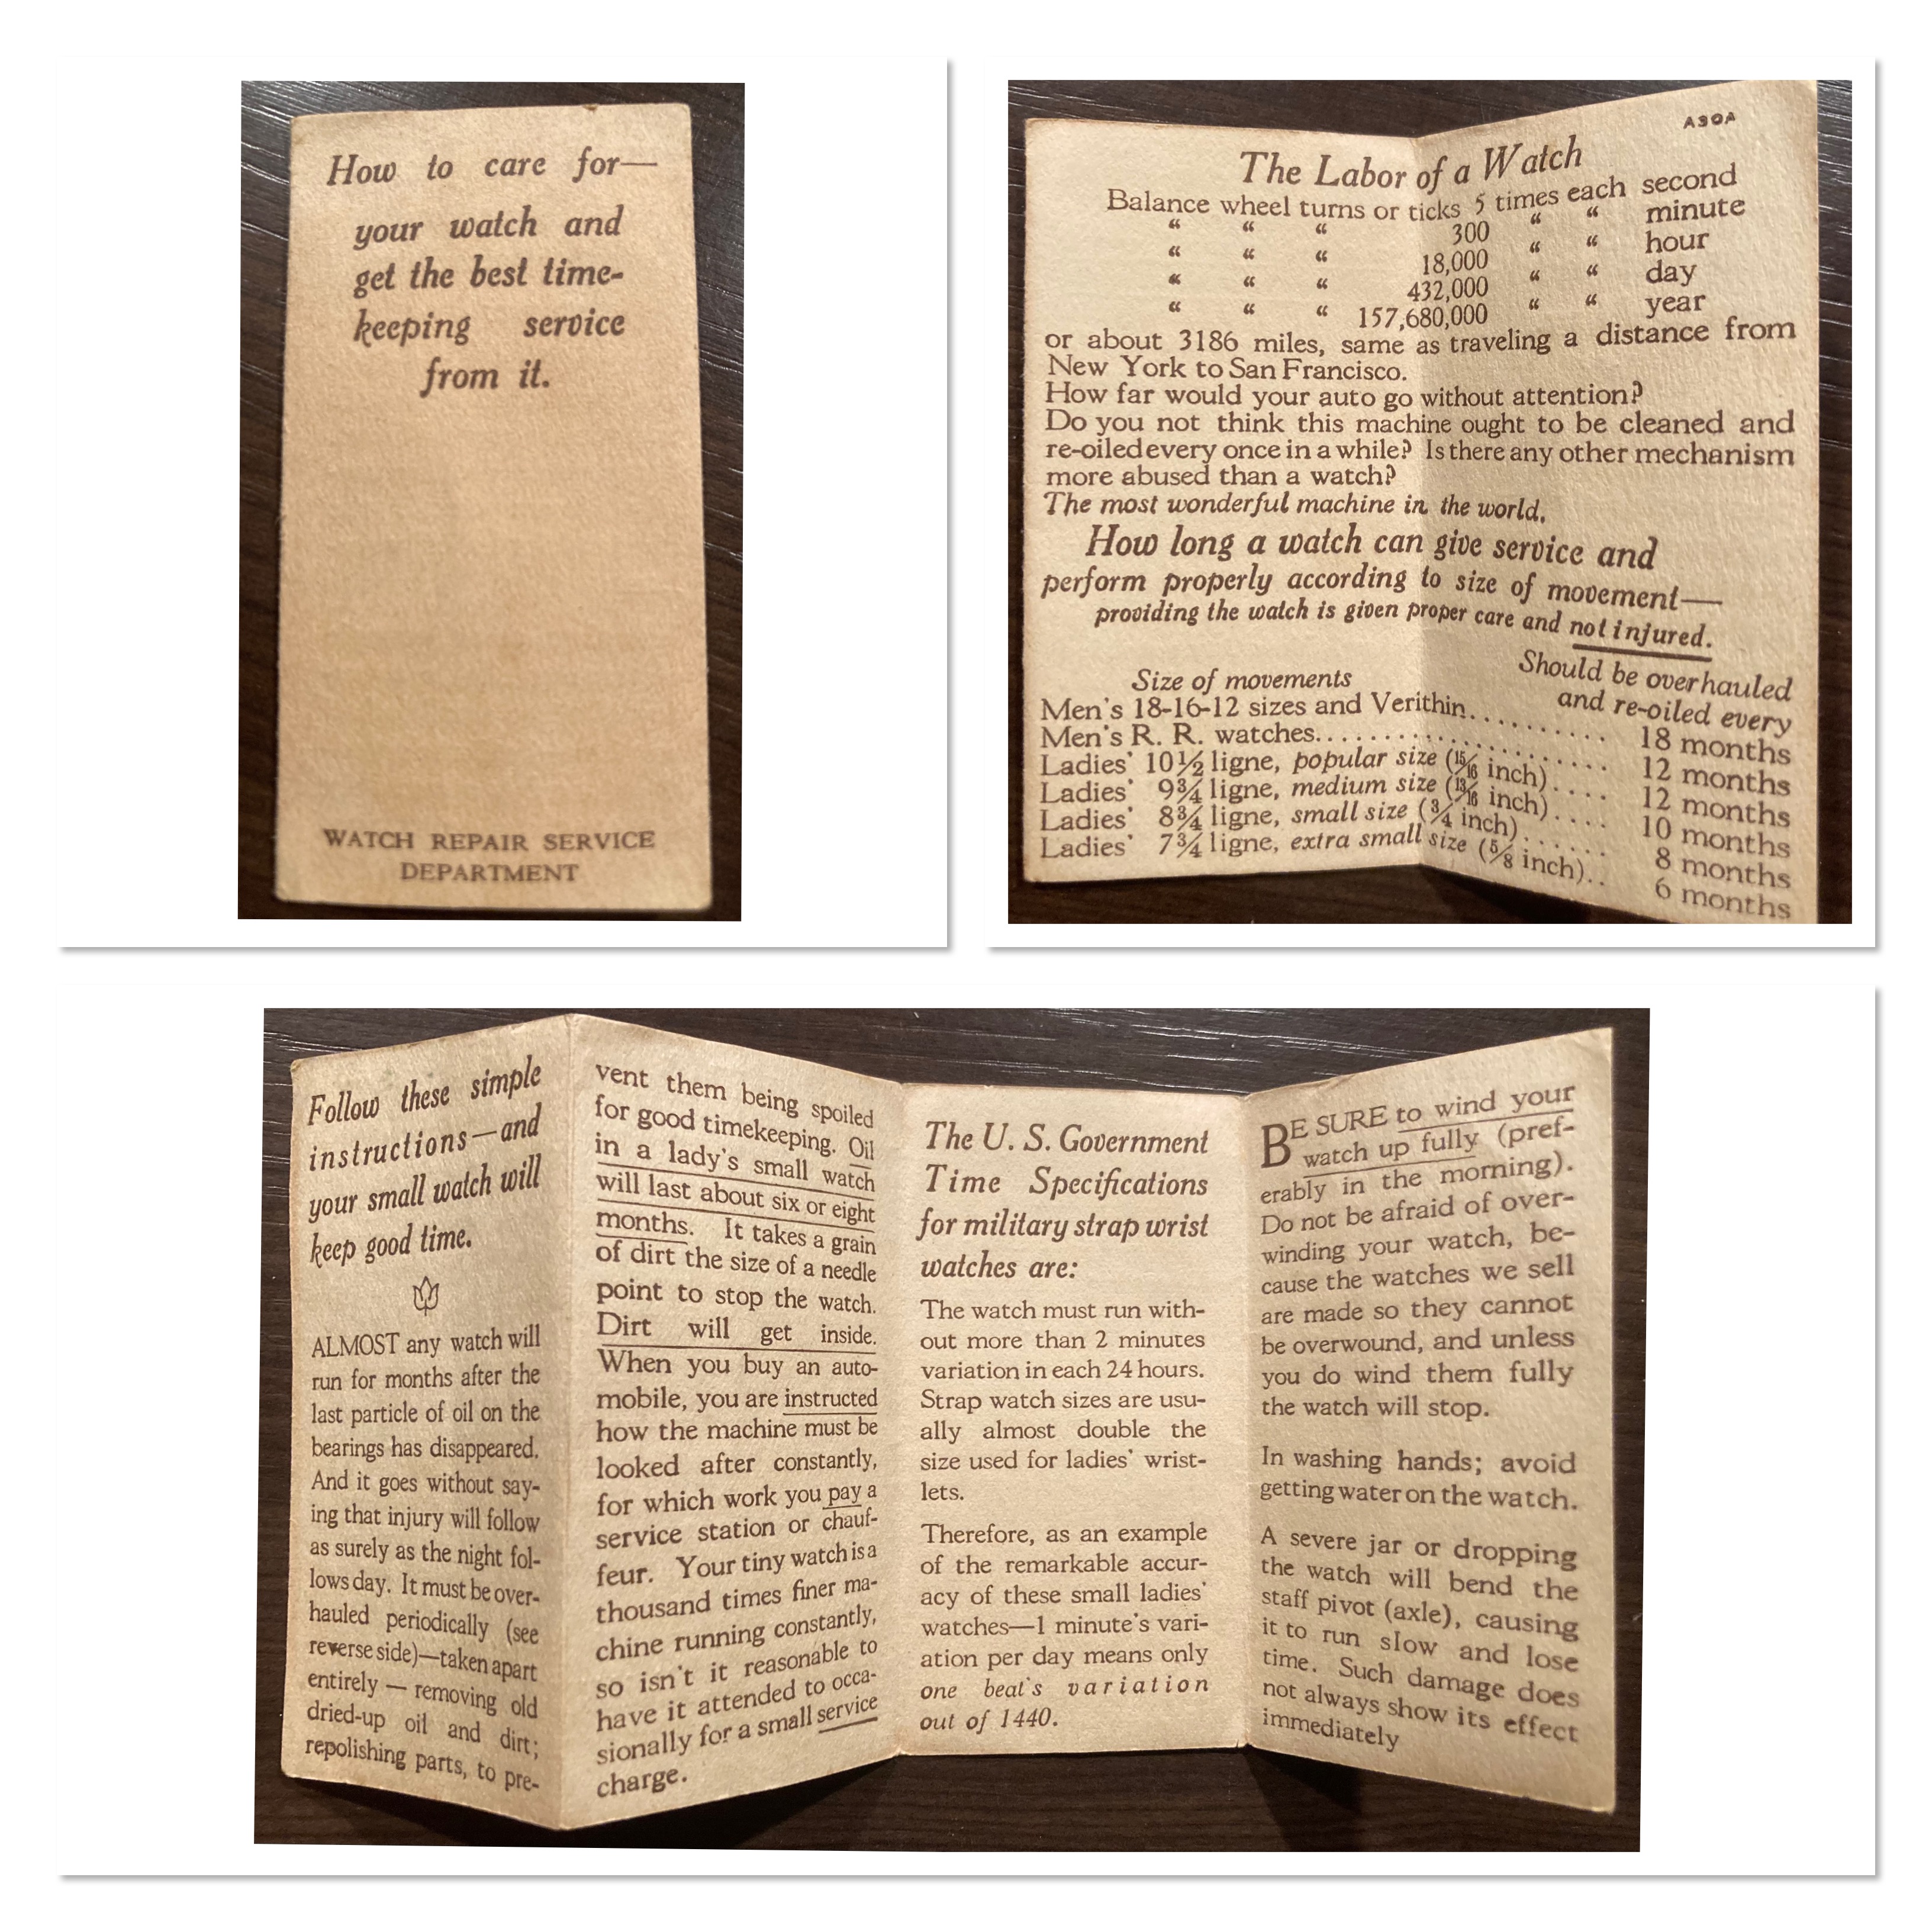 How to care for—
your watch and
get the best time-
keeping service
from it.
WATCH REPAIR SERVICE
DEPARTMENT
A30A
The Labor of a Watch
Balance wheel turns or ticks 5 times each second
“ “ “ 300 “ “ minute
“ “ “ 18,000 “ “ hour
“ “ “ 432,000 “ “ day
“ “ “ 157,680,000 “ “ year
or about 3186 miles, same as traveling a distance from
New York to San Francisco.
How far would your auto go without attention?
Do you not think this machine ought to be cleaned and
re-oiled every once in a while? Is there any other mechanism
more abused than a watch?
The most wonderful machine in the world.
How long a watch can give service and
perform properly according to size of movement—
providing the watch is given proper care and not injured.
Size of movements Should be overhauled
and re-oiled every
Men's 18-16-12 sizes and Verithin.......... 18 months
Men's R. R. watches.................... 12 months
Ladies' 10½ ligne, popular size (15/16 inch).... 12 months
Ladies' 9¾ ligne, medium size (13/16 inch).... 10 months
Ladies' 8¾ ligne, small size (¾ inch)....... 8 months
Ladies' 7¾ ligne, extra small size (⅝ inch).. 6 months
Follow these simple
instructions—and
your small watch will
keep good time.
ALMOST any watch will
run for months after the
last particle of oil on the
bearings has disappeared.
And it goes without say-
ing that injury will follow
as surely as the night fol-
lows day. It must be over-
hauled periodically (see
reverse side)—taken apart
entirely — removing old
dried-up oil and dirt;
repolishing parts, to pre-
vent them being spoiled
for good timekeeping. Oil
in a lady's small watch
will last about six or eight
months. It takes a grain
of dirt the size of a needle
point to stop the watch.
Dirt will get inside.
When you buy an auto-
mobile, you are instructed
how the machine must be
looked after constantly,
for which work you pay a
service station or chauf-
feur. Your tiny watch is a
thousand times finer ma-
chine running constantly,
so isn't it reasonable to
have it attended to occa-
sionally for a small service
charge.
The U. S. Government
Time Specifications
for military strap wrist
watches are:
The watch must run with-
out more than 2 minutes
variation in each 24 hours.
Strap watch sizes are usu-
ally almost double the
size used for ladies' wrist-
lets.
Therefore, as an example
of the remarkable accur-
acy of these small ladies'
watches—1 minute's vari-
ation per day means only
one beat's variation
out of 1440.
BE SURE to wind your
watch up fully (pref-
erably in the morning).
Do not be afraid of over-
winding your watch, be-
cause the watches we sell
are made so they cannot
be overwound, and unless
you do wind them fully
the watch will stop.
In washing hands; avoid
getting water on the watch.
A severe jar or dropping
the watch will bend the
staff pivot (axle), causing
it to run slow and lose
time. Such damage does
not always show its effect
immediately